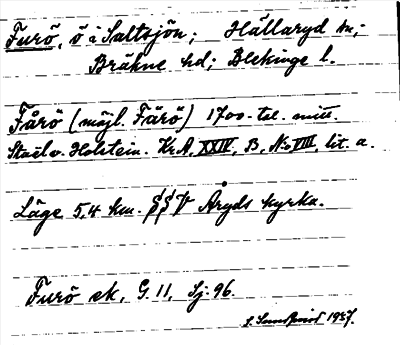 Furö, ö i Saltsjön; Hällaryd sn;
Bräkne hd; Blekinge l.
Fårö (möjl. Färö) 1700-tal. mitt.
Staël v. Holstein. Kr.A, XXIV, B, N:o VIII, lit. a.
Läge 5,4 km. SSV Åryds kyrka.
Furö ek, G. 11, Sj: 96.
S. Sundquist 1927.